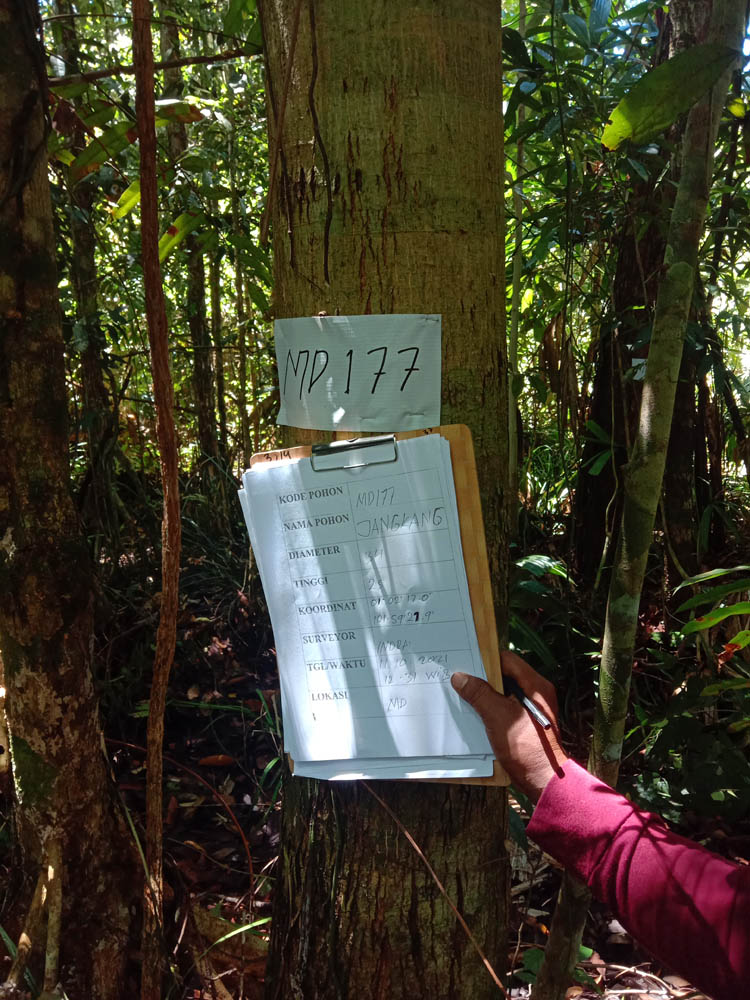 MD 177
KODE POHON MD177
NAMA POHON JANGKANG
DIAMETER 34
TINGGI
KOORDINAT
SURVEYOR INDRA
TGL/WAKTU 11 10 2021
12 - 31 WIB
LOKASI MD